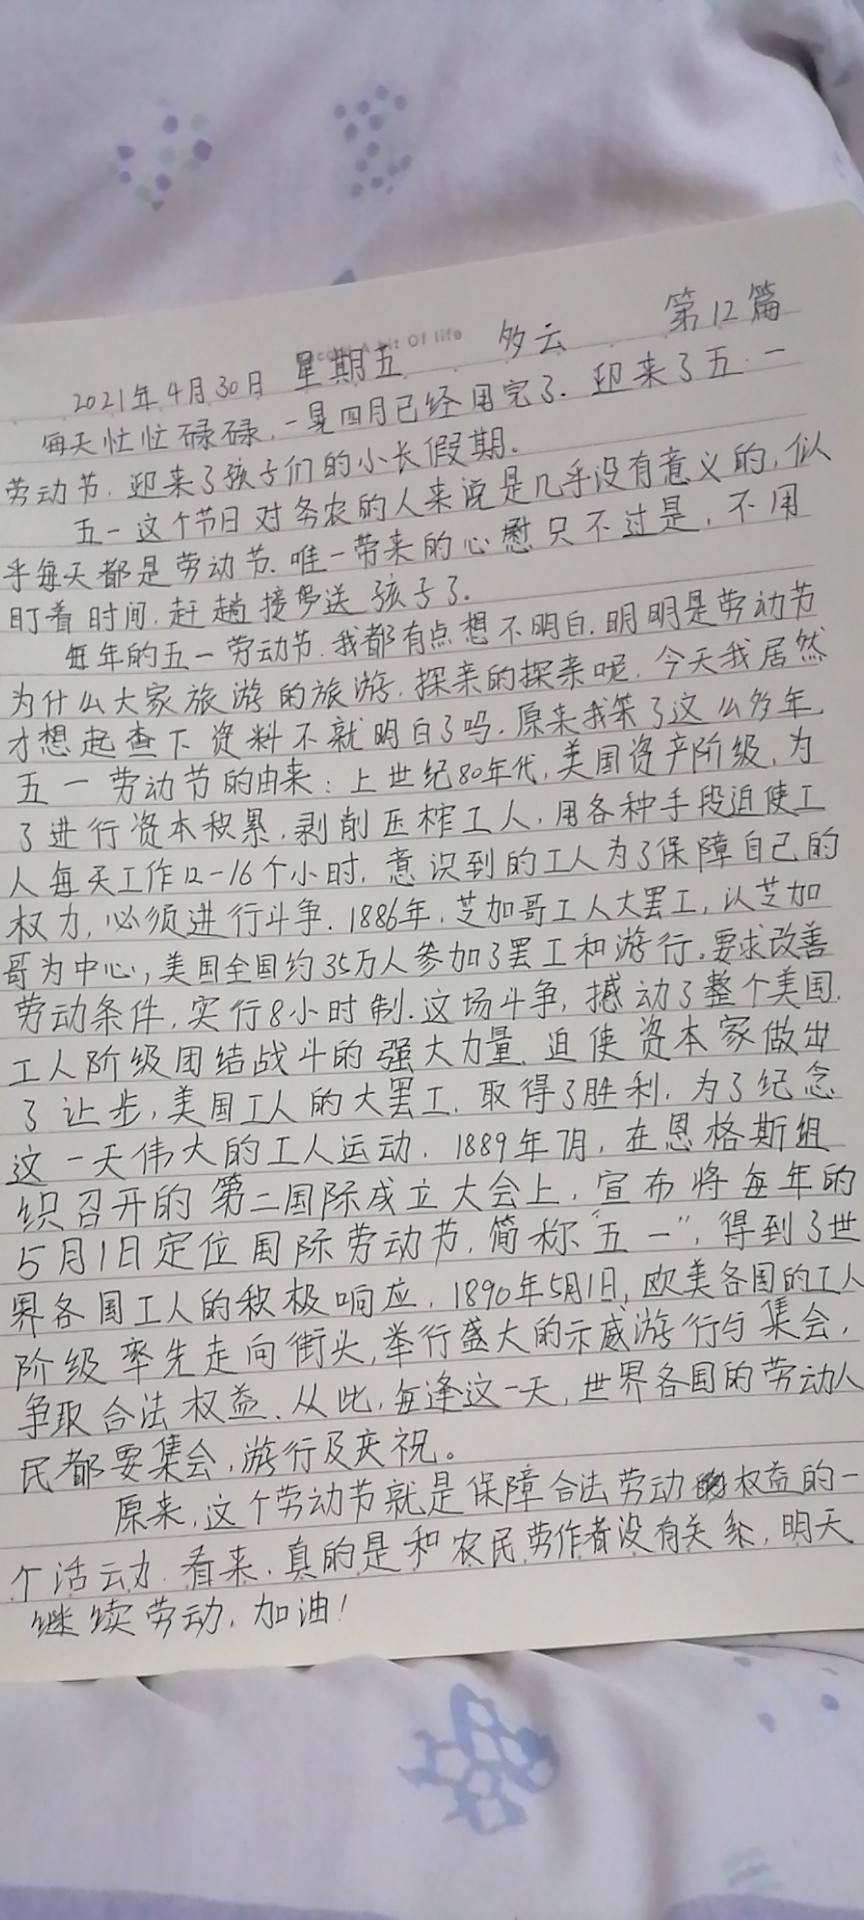 2021年4月30日 星期五 多云 第12篇
Of life
每天忙忙碌碌,一晃四月已经用完了.迎来了五.一
劳动节.迎来了孩子们的小长假期.
五一这个节日对务农的人来说是几乎没有意义的,似
乎每天都是劳动节.唯一带来的心慰只不过是,不用
盯着时间,赶趟接送孩子了.
每年的五一劳动节.我都有点想不明白.明明是劳动节
为什么大家旅游的旅游.探亲的探亲呢.今天我居然
才想起查下资料不就明白了吗.原来我笨了这么多年.
五一劳动节的由来:上世纪80年代,美国资产阶级,为
了进行资本积累,剥削压榨工人,用各种手段迫使工
人每天工作12-16个小时.意识到的工人为了保障自己的
权力,必须进行斗争.1886年,芝加哥工人大罢工,以芝加
哥为中心,美国全国约35万人参加了罢工和游行.要求改善
劳动条件,实行8小时制.这场斗争,撼动了整个美国.
工人阶级团结战斗的强大力量.迫使资本家做出
了让步,美国工人的大罢工.取得了胜利.为了纪念
这一天伟大的工人运动.1889年7月,在恩格斯组
织召开的第二国际成立大会上,宣布将每年的
5月1日定位国际劳动节,简称“五一”,得到了世
界各国工人的积极响应.1890年5月1日,欧美各国的工人
阶级率先走向街头,举行盛大的示威游行与集会,
争取合法权益.从此,每逢这一天,世界各国的劳动人
民都要集会,游行及庆祝。
原来,这个劳动节就是保障合法劳动权益的一
个活动.看来,真的是和农民劳作者没有关系,明天
继续劳动.加油!